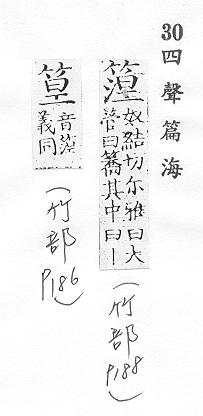 30四聲篇海
篞
奴結切尔雅曰大
管曰簥其中曰丨
(竹部P188)
音篞
義同
(竹部P186)